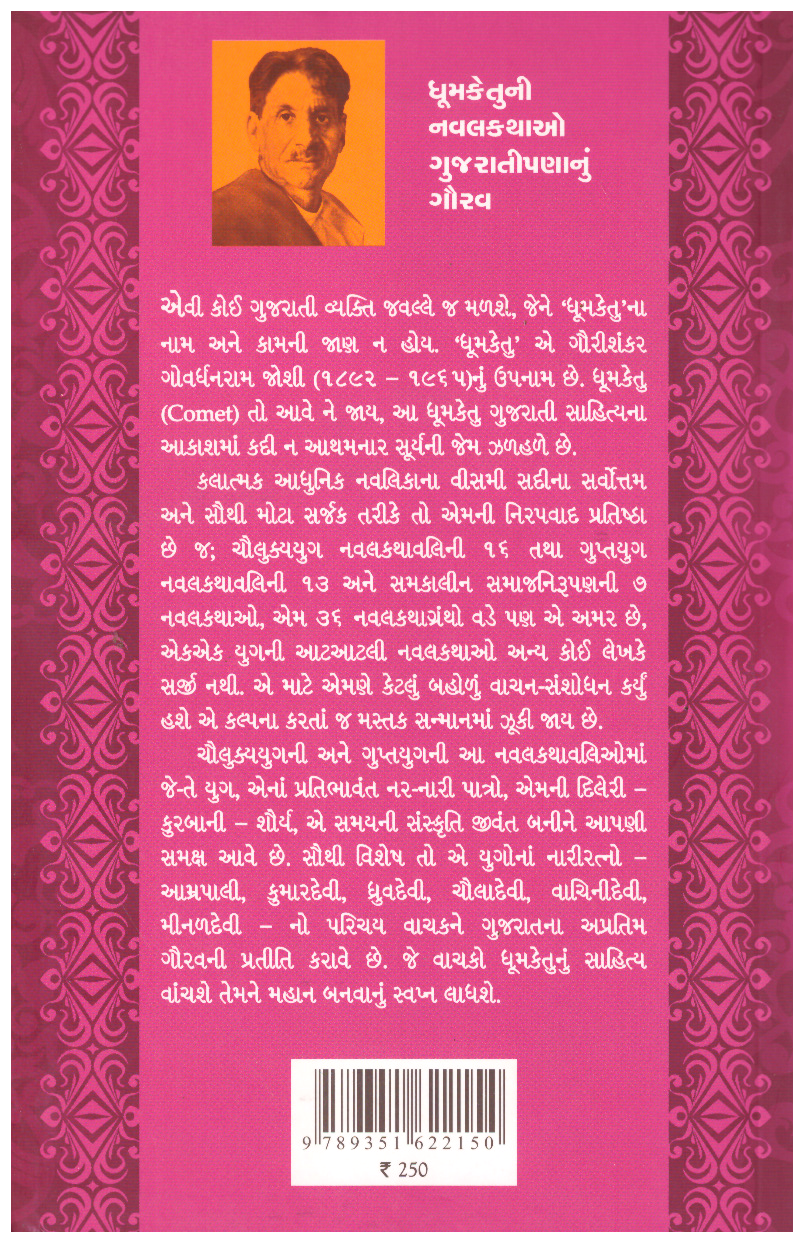 ધૂમકેતુની
નવલકથાઓ
ગુજરાતીપણાનું
ગૌરવ
એવી કોઈ ગુજરાતી વ્યક્તિ જવલ્લે જ મળશે, જેને ‘ધૂમકેતુ’ના
નામ અને કામની જાણ ન હોય. ‘ધૂમકેતુ’ એ ગૌરીશંકર
ગોવર્ધનરામ જોશી (૧૮૯૨ – ૧૯૬૫)નું ઉપનામ છે. ધૂમકેતુ
(Comet) તો આવે ને જાય, આ ધૂમકેતુ ગુજરાતી સાહિત્યના
આકાશમાં કદી ન આથમનાર સૂર્યની જેમ ઝળહળે છે.
કલાત્મક આધુનિક નવલિકાના વીસમી સદીના સર્વોત્તમ
અને સૌથી મોટા સર્જક તરીકે તો એમની નિરપવાદ પ્રતિષ્ઠા
છે જ; ચૌલુક્યયુગ નવલકથાવલિની ૧૬ તથા ગુપ્તયુગ
નવલકથાવલિની ૧૩ અને સમકાલીન સમાજનિરૂપણની ૭
નવલકથાઓ, એમ ૩૬ નવલકથાગ્રંથો વડે પણ એ અમર છે,
એકએક યુગની આટઆટલી નવલકથાઓ અન્ય કોઈ લેખકે
સર્જી નથી. એ માટે એમણે કેટલું બહોળું વાચન-સંશોધન કર્યું
હશે એ કલ્પના કરતાં જ મસ્તક સન્માનમાં ઝૂકી જાય છે.
ચૌલુક્યયુગની અને ગુપ્તયુગની આ નવલકથાવલિઓમાં
જે-તે યુગ, એનાં પ્રતિભાવંત નર-નારી પાત્રો, એમની દિલેરી –
કુરબાની – શૌર્ય, એ સમયની સંસ્કૃતિ જીવંત બનીને આપણી
સમક્ષ આવે છે. સૌથી વિશેષ તો એ યુગોનાં નારીરત્નો –
આમ્રપાલી, કુમારદેવી, ધ્રુવદેવી, ચૌલાદેવી, વાચિનીદેવી,
મીનળદેવી – નો પરિચય વાચકને ગુજરાતના અપ્રતિમ
ગૌરવની પ્રતીતિ કરાવે છે. જે વાચકો ધૂમકેતુનું સાહિત્ય
વાંચશે તેમને મહાન બનવાનું સ્વપ્ન લાધશે.
9 789351 622150
₹ 250